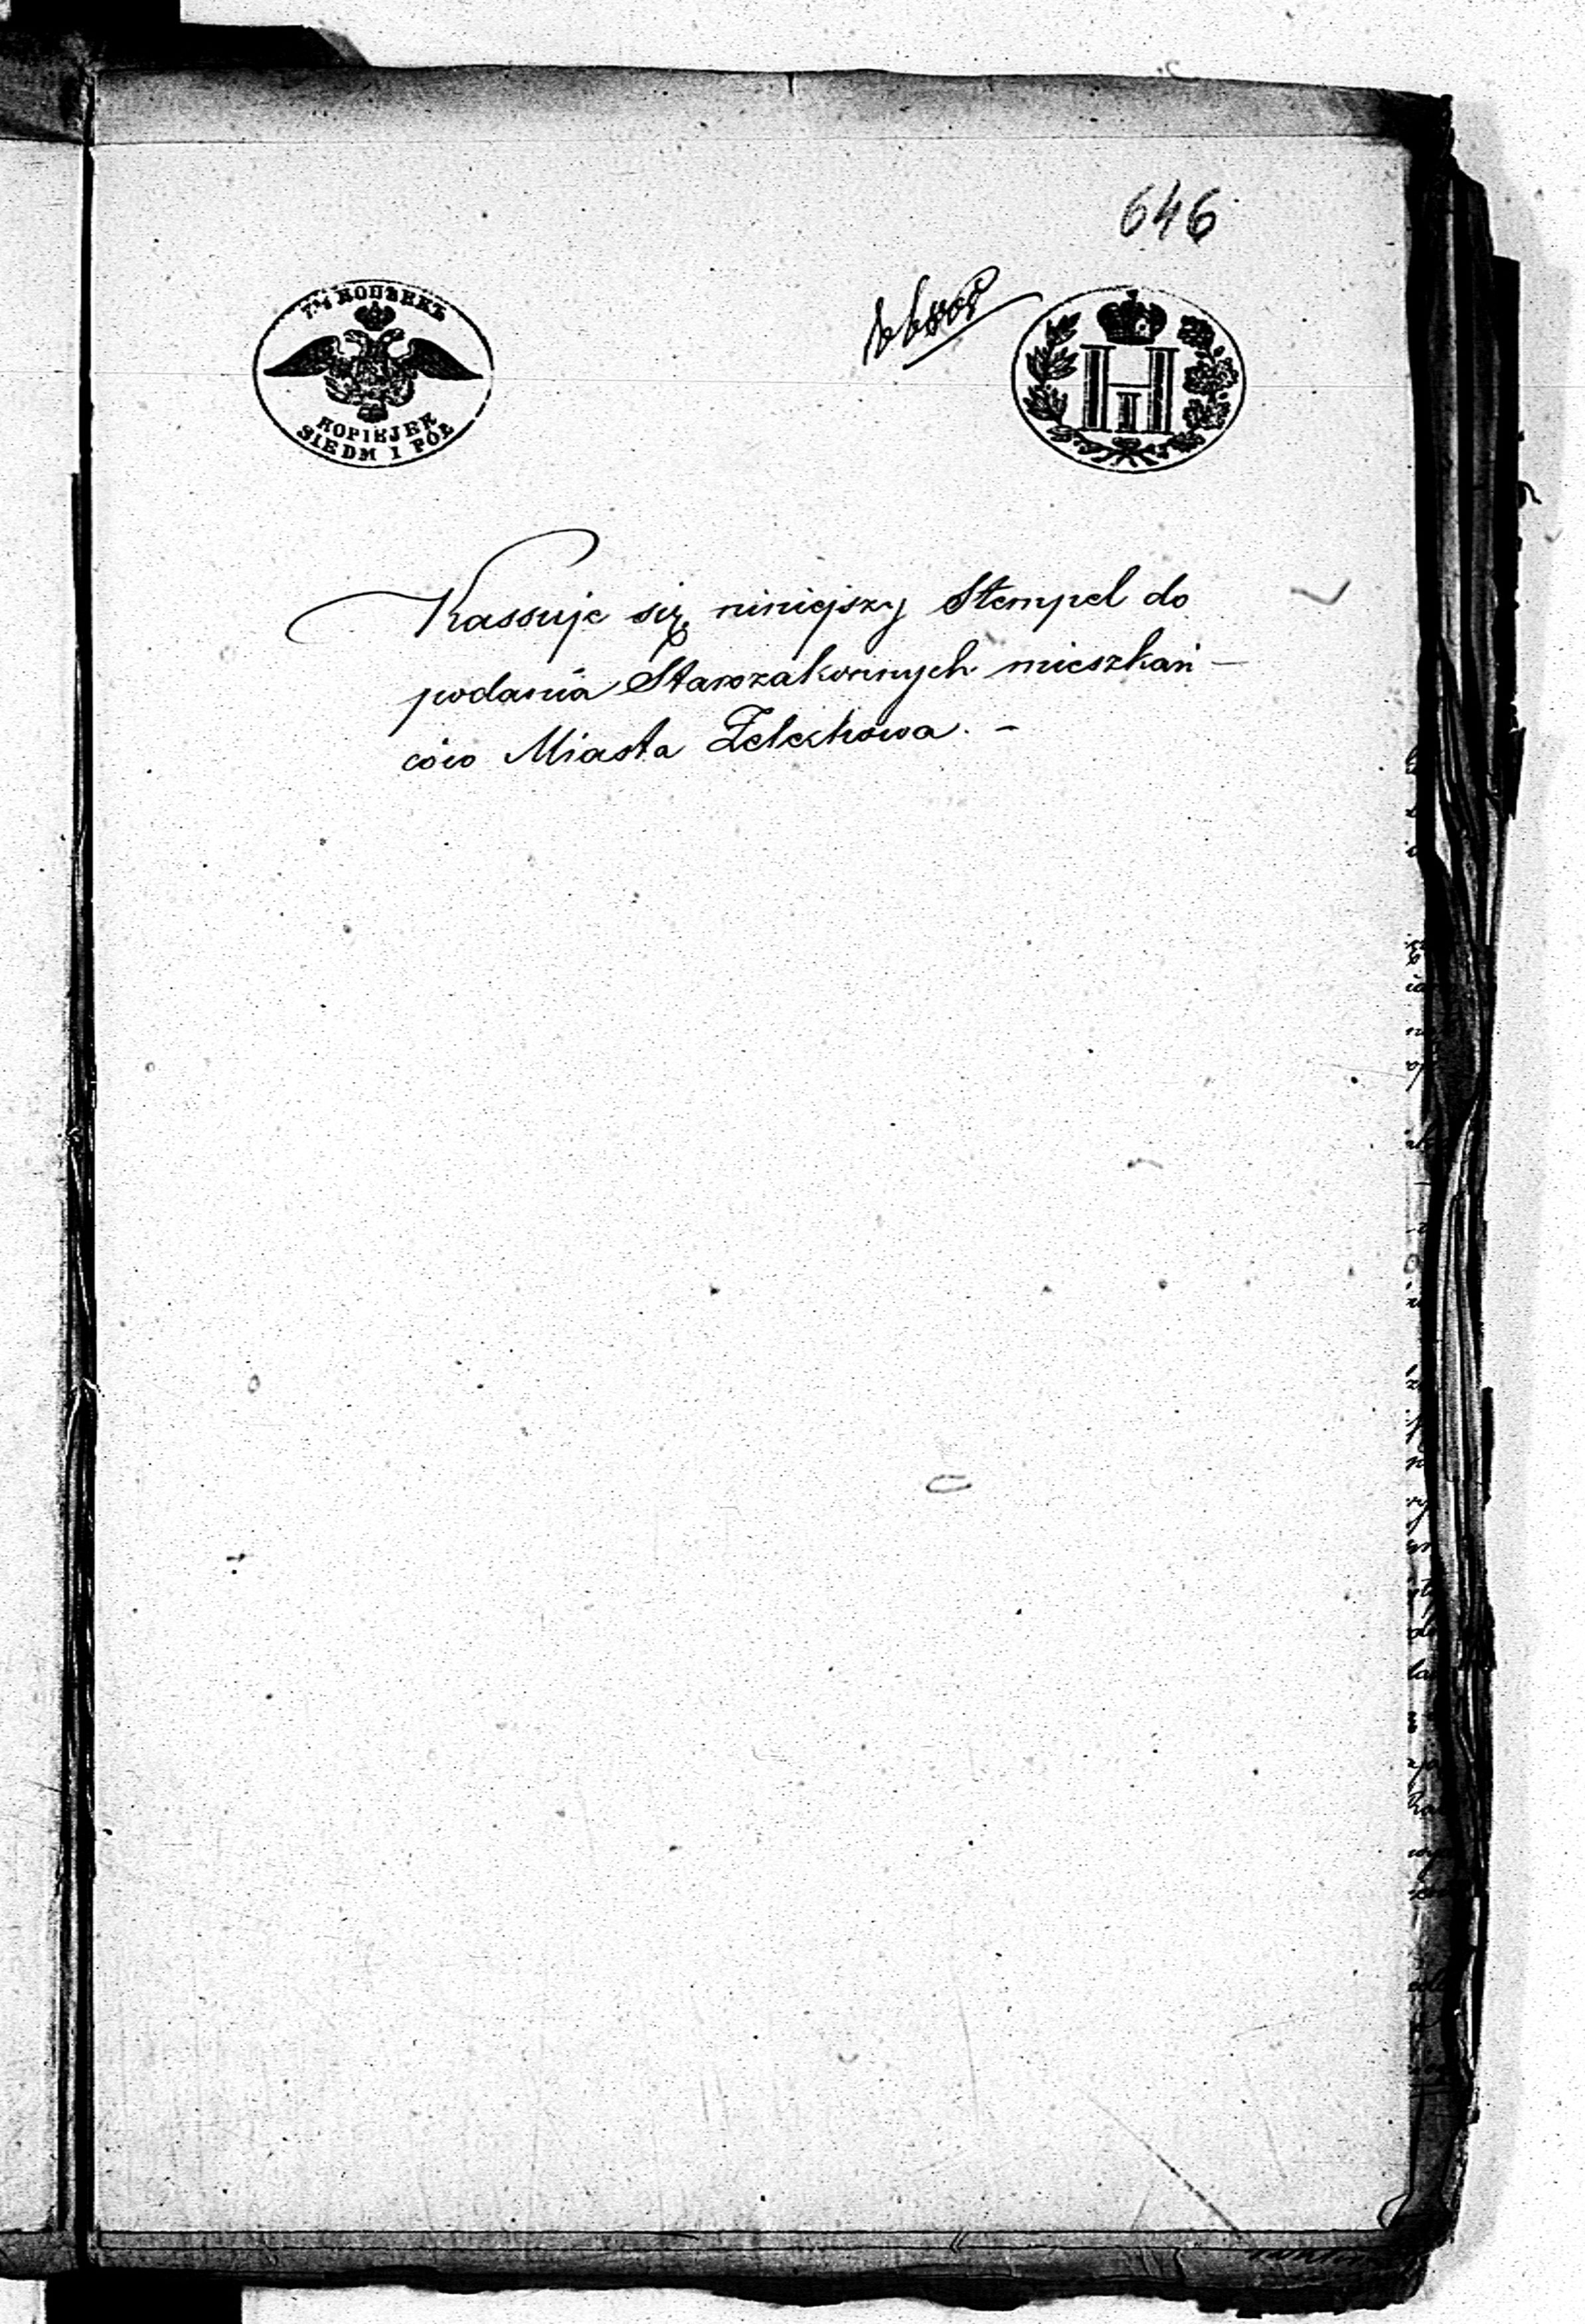 646
7½ КОПѢЕКЪ
KOPIEJEK
SIEDM I PÓŁ
Н
I
Kassuje się niniejszy Stempel do
podania Starozakonnych mieszkań–
ców Miasta Żelechowa. –